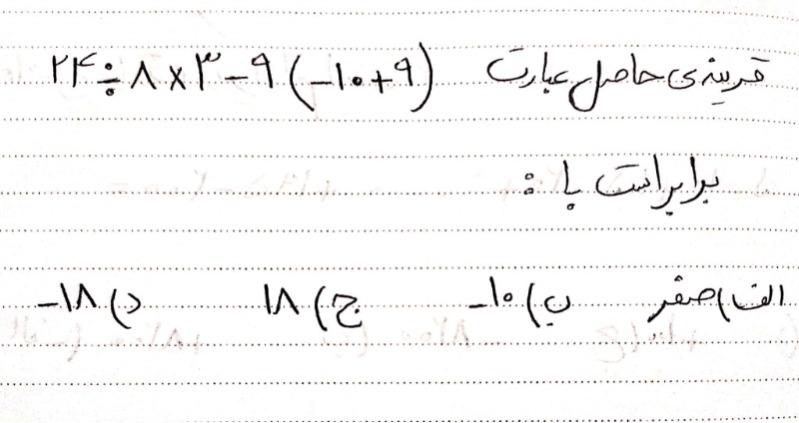 قرینه‌ی حاصل عبارت ۲۴ ÷ ۸ × ۳ - ۹ (-۱۰+۹)
برابر است با :
الف) صفر ب) -۱۰ ج) ۱۸ د) -۱۸